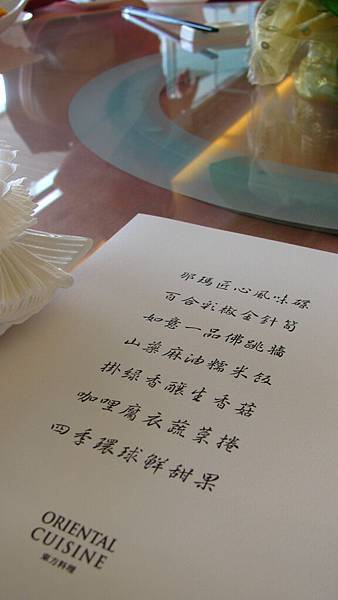 那瑪匠心風味碟
百合彩椒金針筍
如意一品佛跳牆
山藥麻油糯米飯
掛綠香釀生香菇
咖哩腐衣蔬菜捲
四季環球鮮甜果
ORIENTAL
CUISINE
東方料理